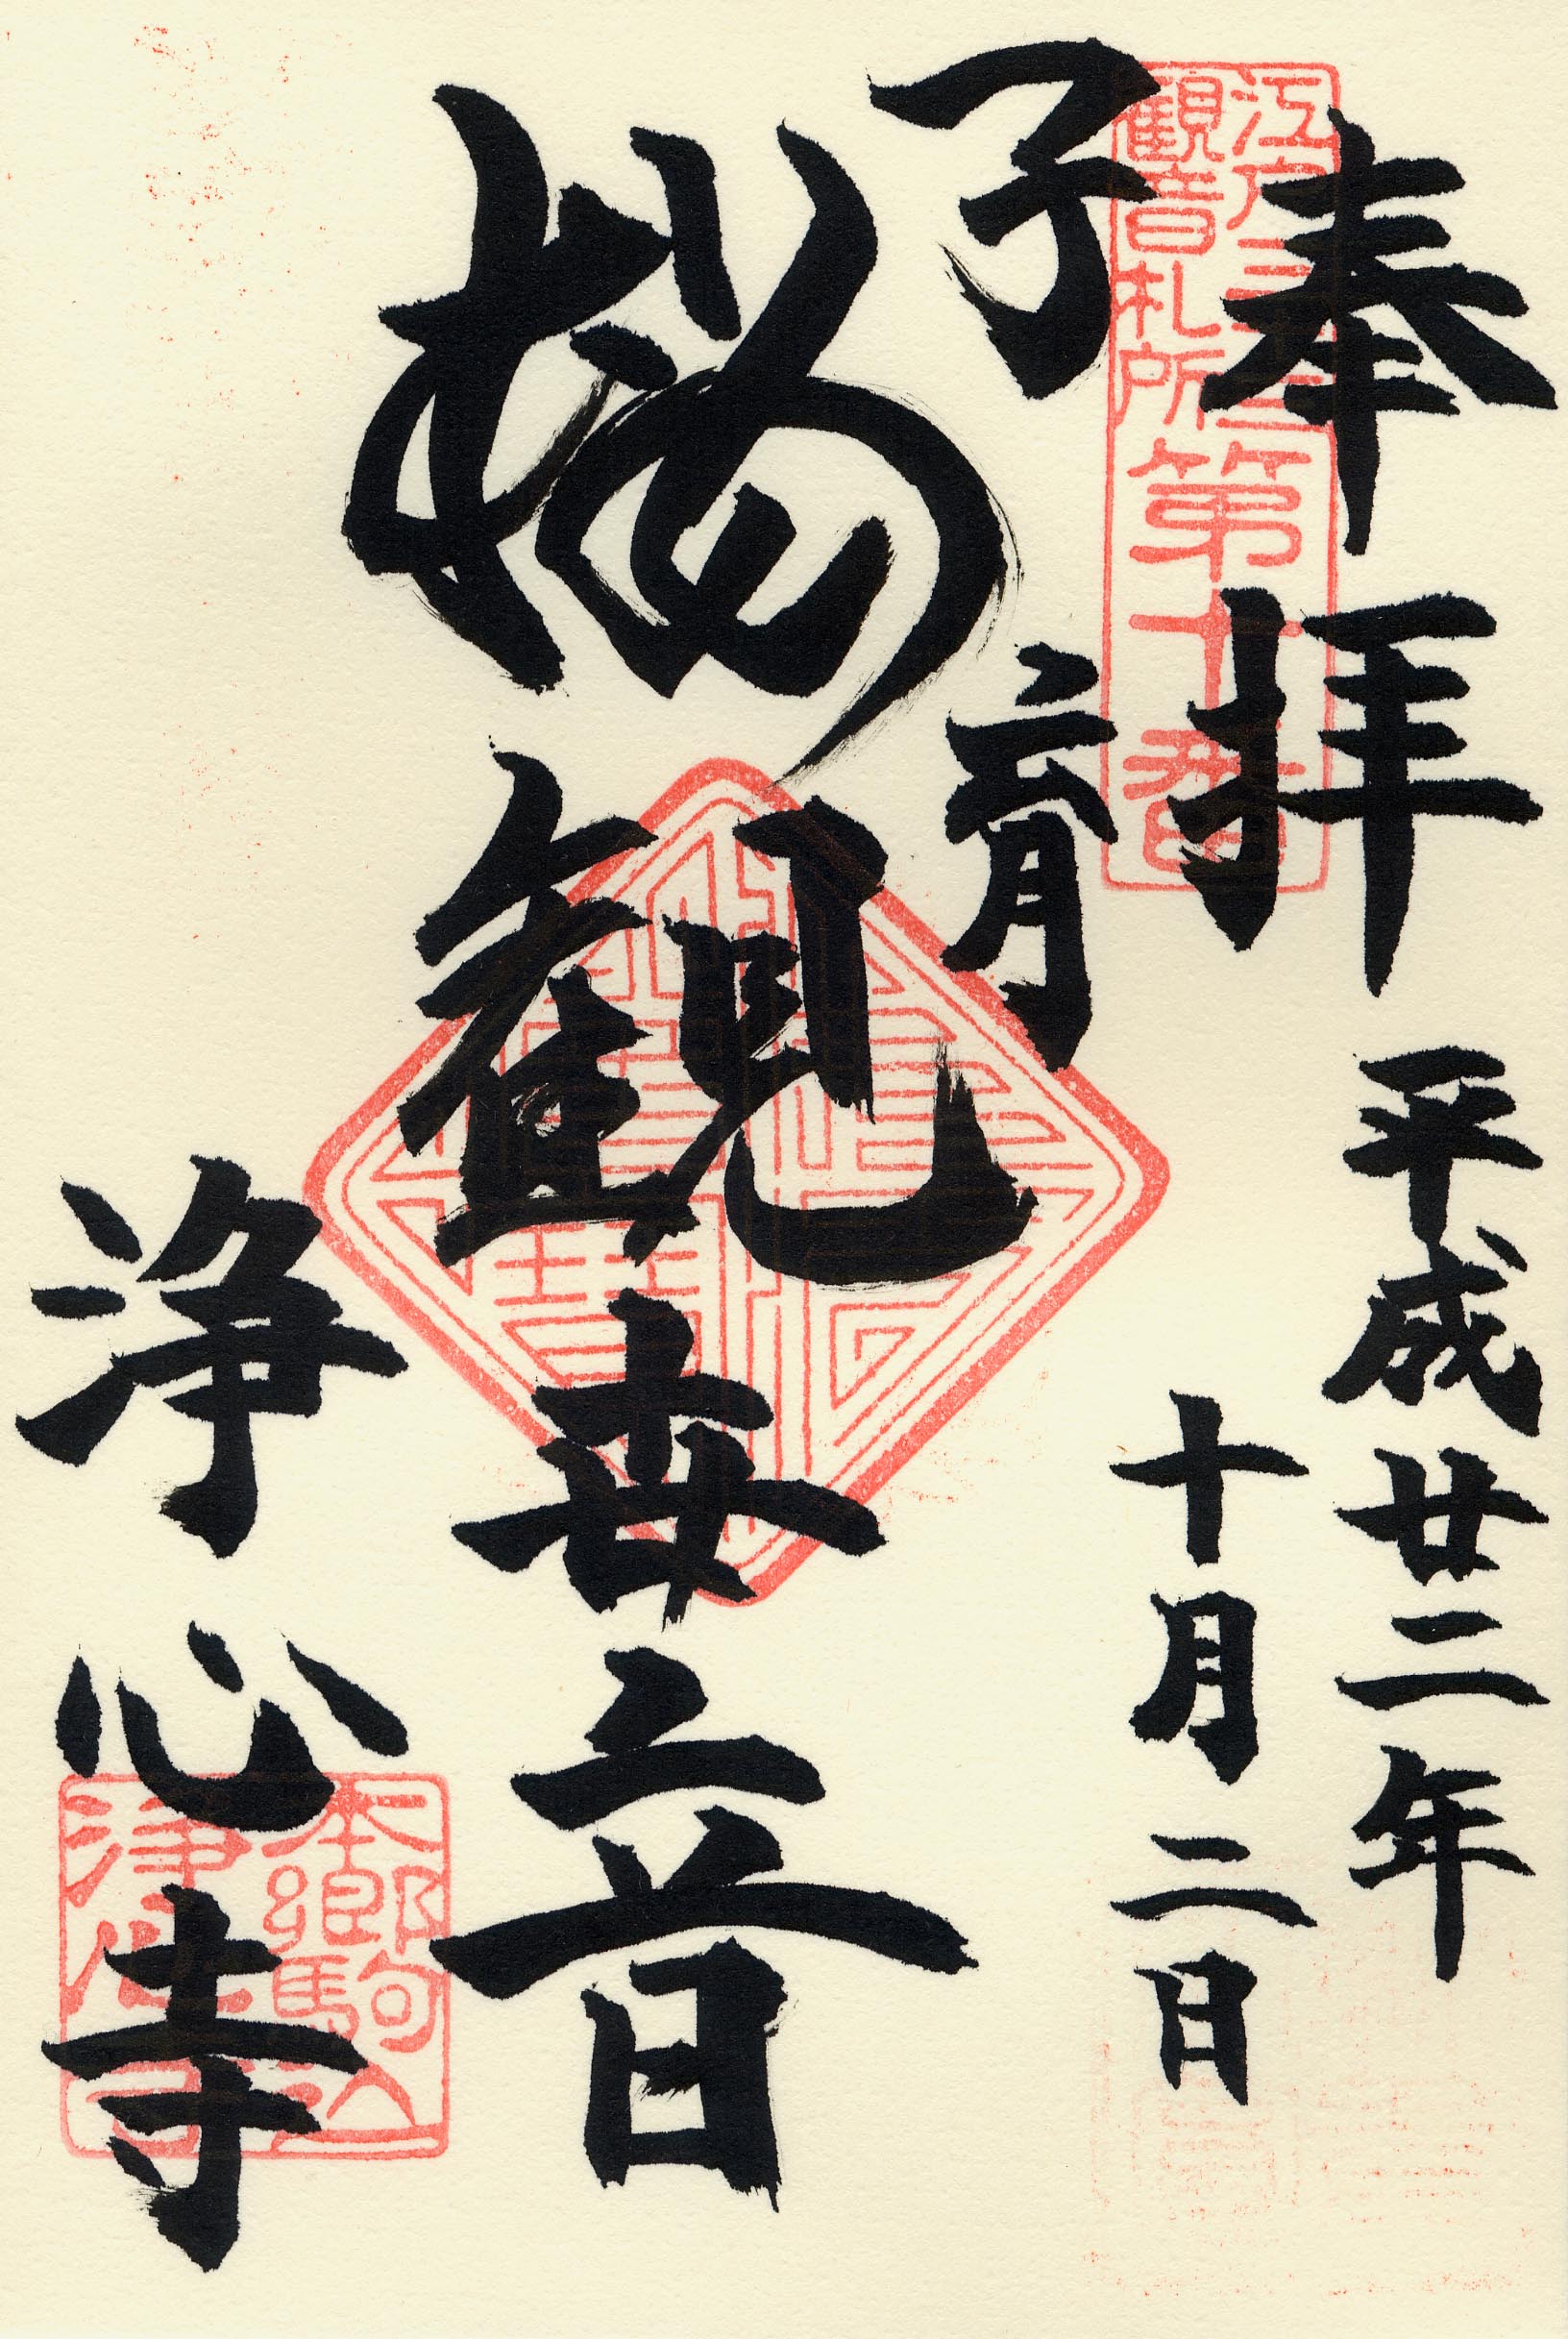 奉拝
平成廿二年
十月二日
子育
観世音
浄心寺
江戸三十三
観音札所
第十番
本郷駒込
浄心寺